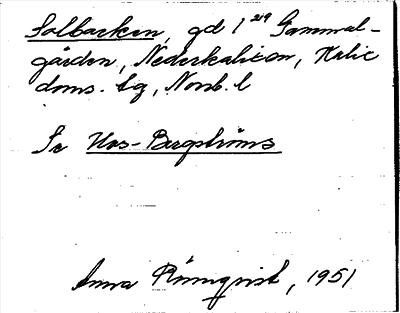 Solbacken, gd 1²¹⁹ Gammel-
gården, Nederkalix sn, Kalix
doms. lg, Norrb. l
Se Hos-Bergströms
Anna Rönnqvist, 1951